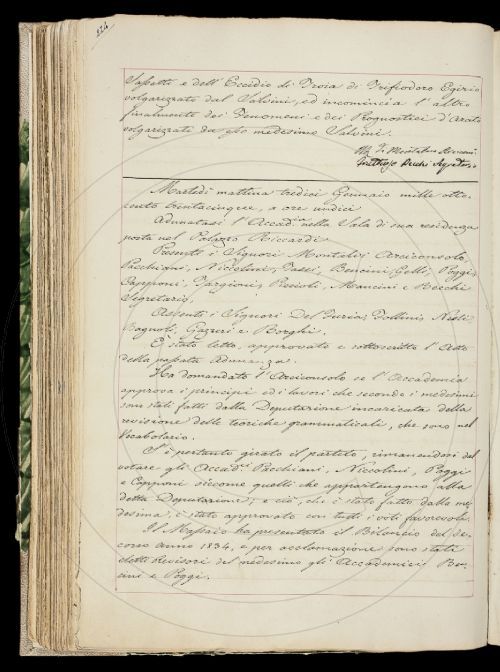 224
Tabatti e dell' Eccidio di Troia di Trifiodoro Egizio
volgarizzato dal Salvini, ed incomincia l' altro
finalmente dei Fenomeni e dei Prognostici d' Arato
volgarizzati da esso medesimo Salvini.
Martedì mattina tredici Gennaio mille otto
cento trentacinque, a ore undici
Adunatasi l' Accad.ia nella Sala di sua residenza
posta nel Palazzo Riccardi
Presenti i Signori Montalvi Arciconsolo,
Pacchiani, Niccolini, Tassi, Bencini, Gelli, Poggi,
Capponi, Targioni, Rezioli, Mancini e Becchi
Segretario.
Assenti i Signori Del Furia, Follini, Nesti
Bagnoli, Gazzeri e Borghi.
È stato letto, approvato e sottoscritto l' Atto
della passata Adunanza.
Ha domandato l' Arciconsolo se l' Accademia
approva i principj ed i lavori che secondo i medesimi
sono stati fatti dalla Deputazione incaricata della
revisione delle teoriche grammaticali, che sono nel
Vocabolario.
S' è pertanto girato il partito, rimanendosi dal
votare gli Accad.ci Pacchiani, Niccolini, Poggi
e Capponi siccome quelli che appartengono alla
detta Deputazione; e ciò, che è stato fatto dalla me-
desima, è stato approvato con tutti i voti favorevoli.
Il Massaio ha presentato il Bilancio del de-
corso anno 1834, e per acclamazione sono stati
eletti Revisori del medesimo gli Accademici Ben-
cini e Poggi.